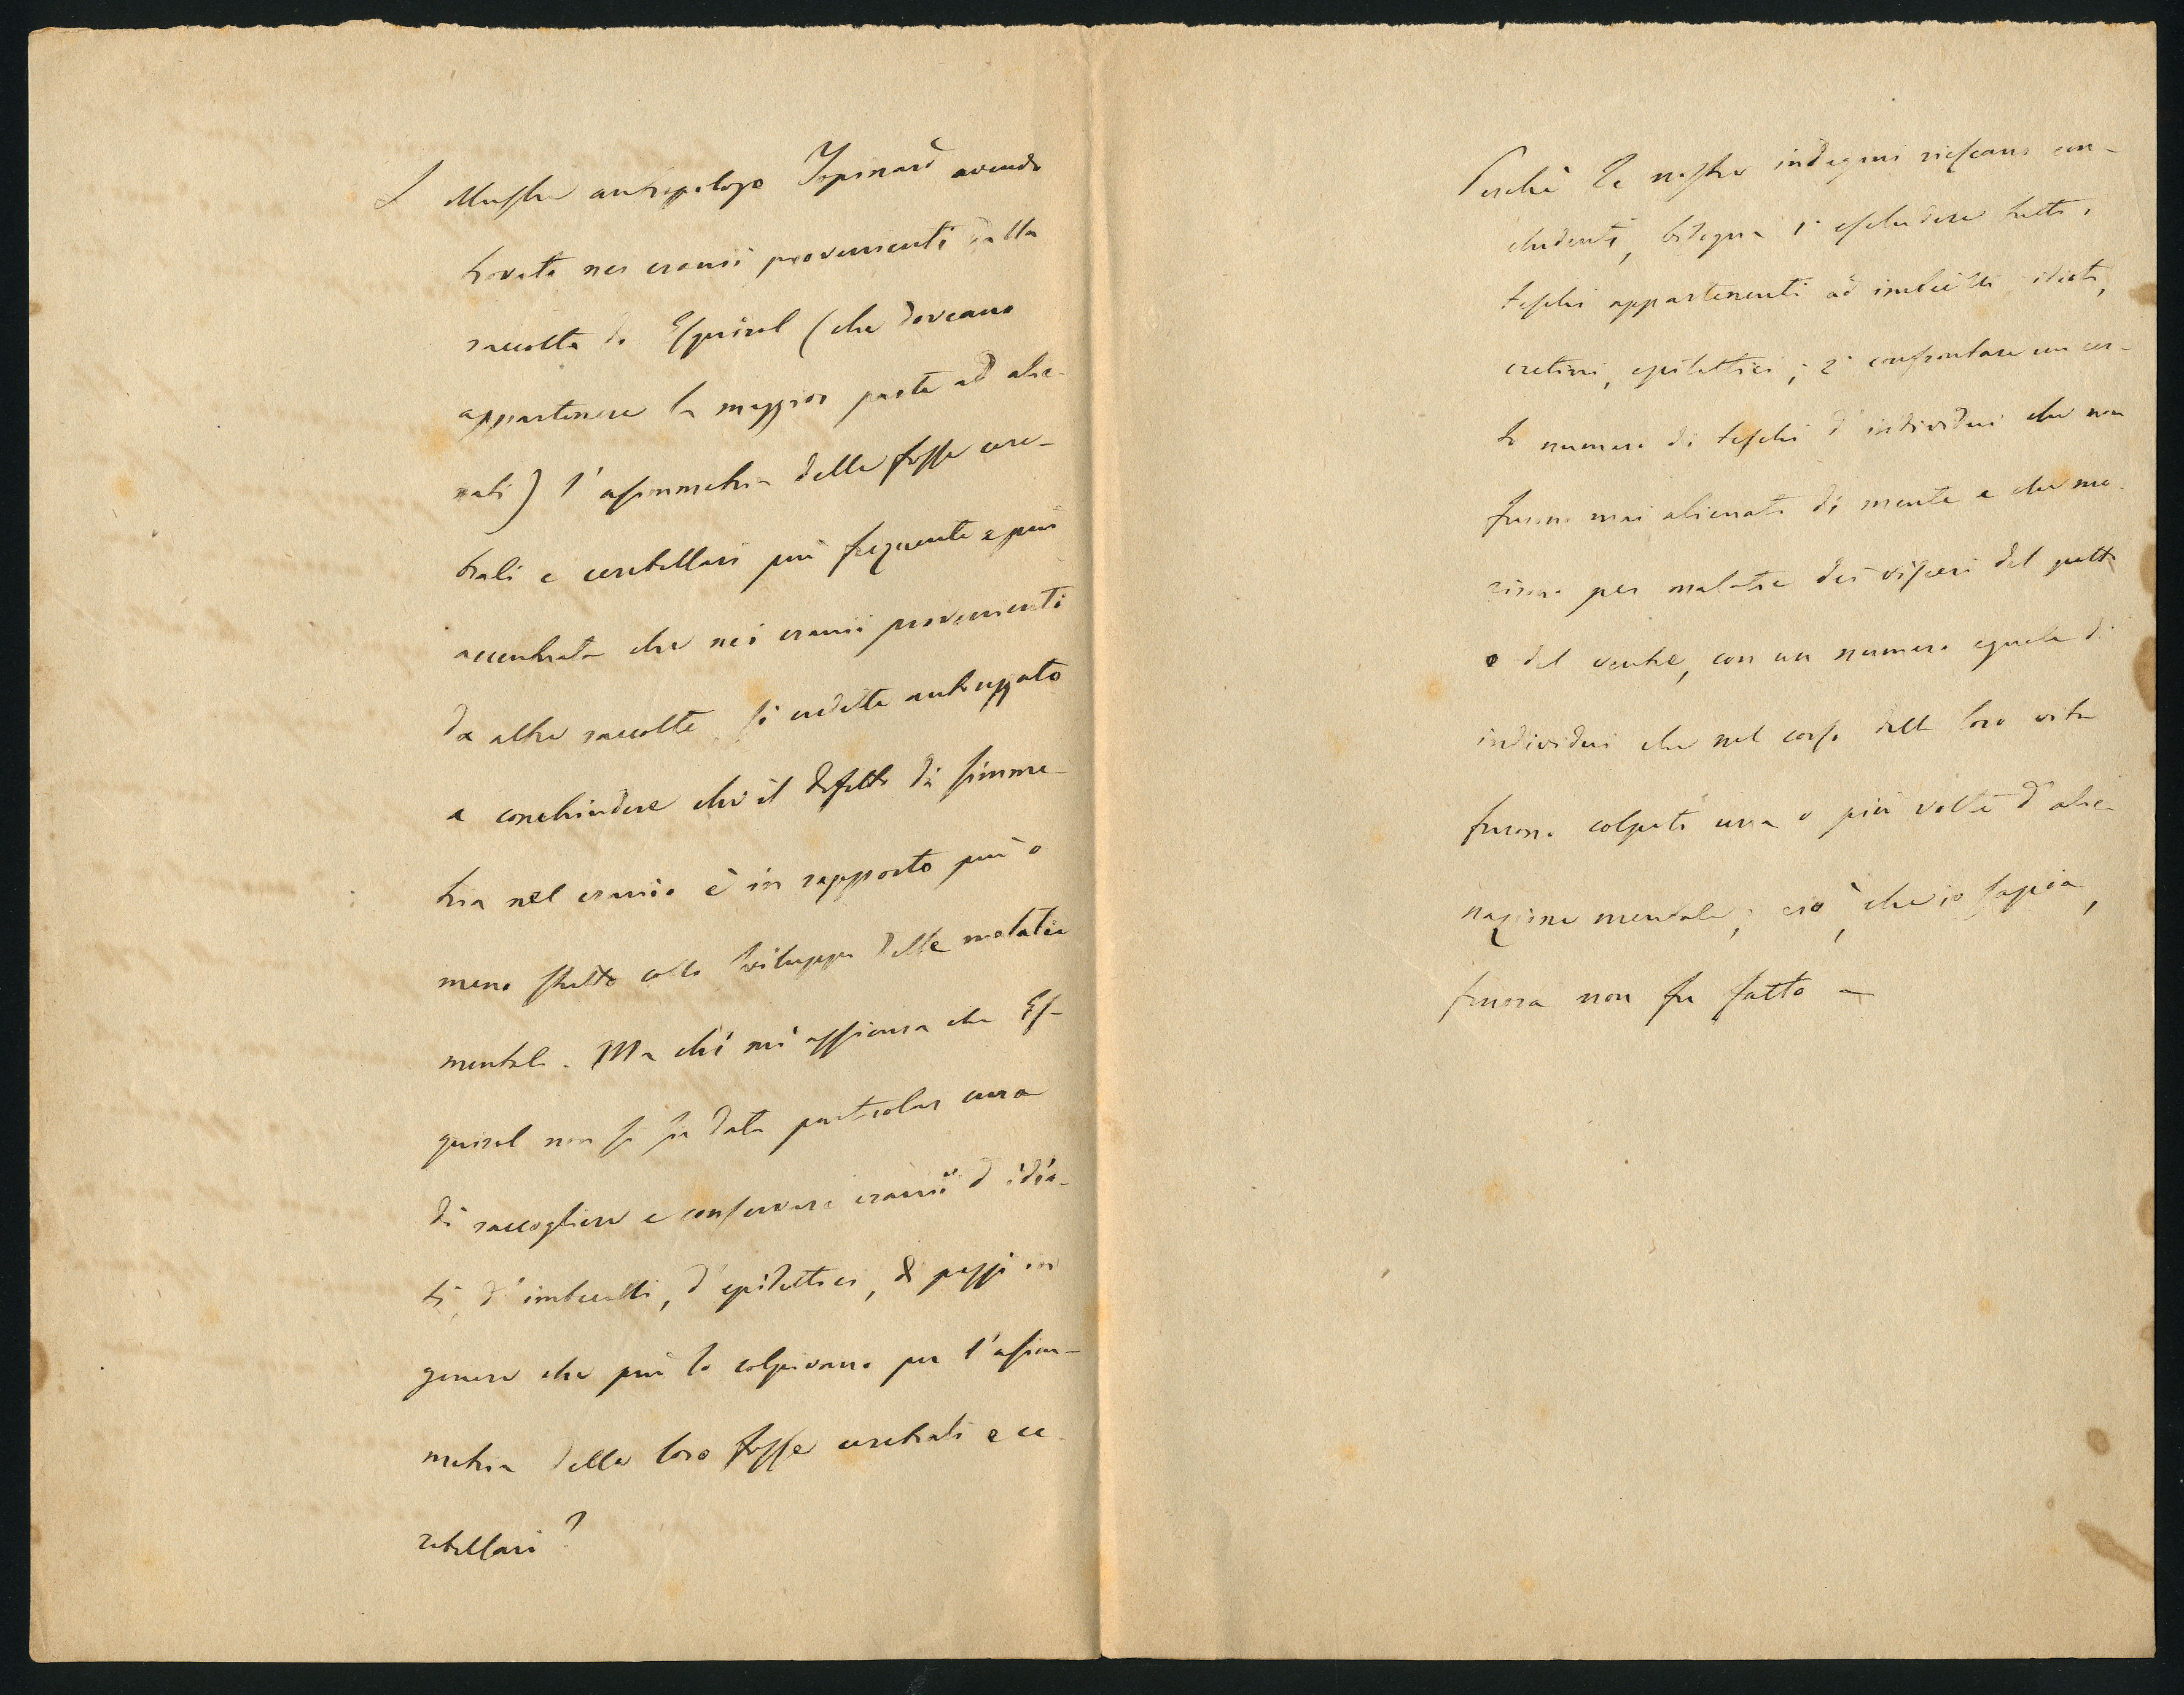 L'illustre antropologo Topinard avendo
trovato nei cranii provenienti dalla
raccolta di Esquirol (che doveano
appartenere la maggior parte ad alie-
nati) l'asimmetria delle fosse cere-
brali e cerebellari più frequente e più
accentuata che nei cranii provenienti
da altre raccolte, si credette autorizzato
a conchiudere che il difetto di simme-
tria nel cranio è in rapporto più o
meno stretto collo sviluppo delle malatie
mentali. Ma chi mi assicura che Es-
quirol non si sia data particolar cura
di raccogliere e conservare cranii d'idio-
ti, d'imbecilli, d'epilettici, di pazzi in
genere che più lo colpivano per l'asim-
metria delle loro fosse cerebrali e ce-
rebellari?
Perchè le nostre indagini riescano con-
cludenti, bisogna 1° escludere tutti i
teschi appartenenti ad imbecilli, idioti,
cretini, epilettici; 2° confrontare un cer-
to numero di teschi d'individui che non
furono mai alienati di mente e che mo-
rirono per malatie dei visceri del petto
o del ventre, con un numero eguale di
individui che nel corso della loro vita
furono colpiti una o più volte d'alie-
nazione mentale; ciò, che io sappia,
finora non fu fatto —